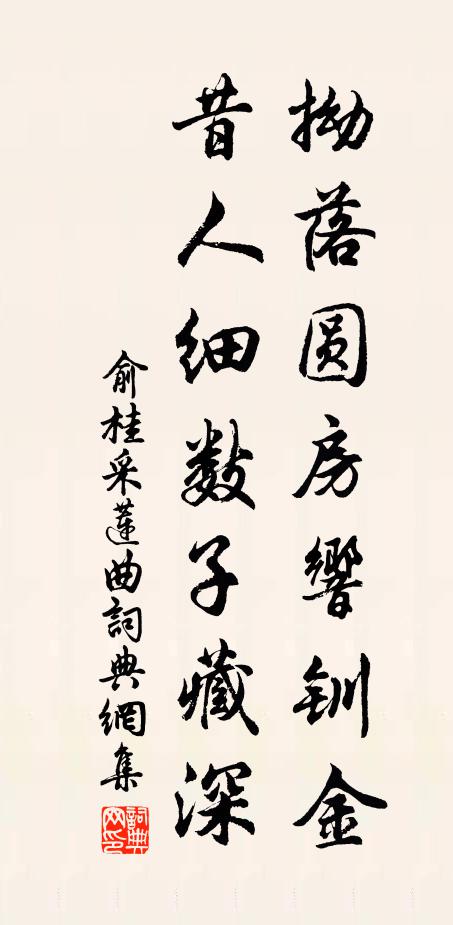 拗落圆房響釧金
昔人细数子藏深
俞桂采蓮曲詞典網集
詞典網印